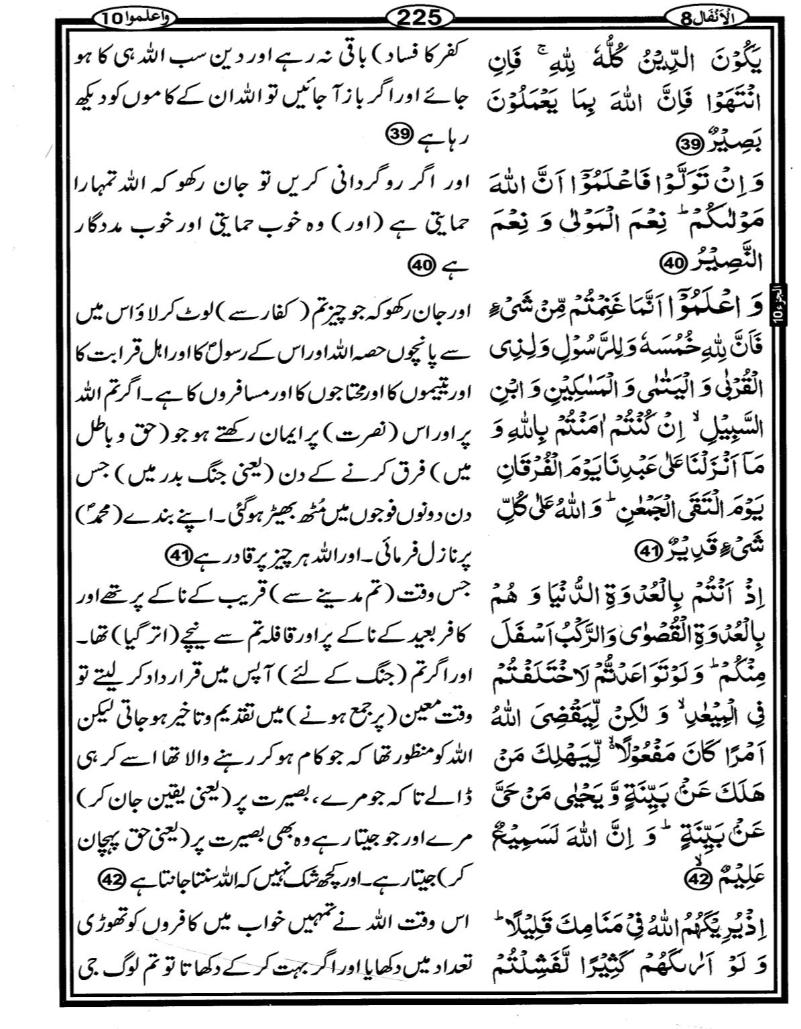 الْاَنْفَال 8
225
واعلموا 10
يَكُوْنَ الدِّيْنُ كُلُّهٗ لِلّٰهِ ۚ فَاِنِ
انْتَهَوْا فَاِنَّ اللّٰهَ بِمَا يَعْمَلُوْنَ
بَصِيْرٌ 39
وَاِنْ تَوَلَّوْا فَاعْلَمُوْٓا اَنَّ اللّٰهَ
مَوْلٰىكُمْ ؕ نِعْمَ الْمَوْلٰى وَ نِعْمَ
النَّصِيْرُ 40
وَ اعْلَمُوْٓا اَنَّمَا غَنِمْتُمْ مِّنْ شَيْءٍ
فَاَنَّ لِلّٰهِ خُمُسَهٗ وَ لِلرَّسُوْلِ وَ لِذِى
الْقُرْبٰى وَ الْيَتٰمٰى وَ الْمَسٰكِيْنِ وَ ابْنِ
السَّبِيْلِ ۙ اِنْ كُنْتُمْ اٰمَنْتُمْ بِاللّٰهِ وَ
مَاۤ اَنْزَلْنَا عَلٰى عَبْدِنَا يَوْمَ الْفُرْقَانِ
يَوْمَ الْتَقَى الْجَمْعٰنِ ؕ وَ اللّٰهُ عَلٰى كُلِّ
شَيْءٍ قَدِيْرٌ 41
اِذْ اَنْتُمْ بِالْعُدْوَةِ الدُّنْيَا وَ هُمْ
بِالْعُدْوَةِ الْقُصْوٰى وَ الرَّكْبُ اَسْفَلَ
مِنْكُمْ ؕ وَ لَوْ تَوَاعَدْتُّمْ لَاخْتَلَفْتُمْ
فِى الْمِيْعٰدِ ۙ وَ لٰكِنْ لِّيَقْضِىَ اللّٰهُ
اَمْرًا كَانَ مَفْعُوْلًا ۙ لِّيَهْلِكَ مَنْ
هَلَكَ عَنْۢ بَيِّنَةٍ وَّ يَحْيٰى مَنْ حَىَّ
عَنْۢ بَيِّنَةٍ ؕ وَ اِنَّ اللّٰهَ لَسَمِيْعٌ
عَلِيْمٌ ۙ 42
اِذْ يُرِيْكَهُمُ اللّٰهُ فِىْ مَنَامِكَ قَلِيْلًا ؕ
وَ لَوْ اَرٰىكَهُمْ كَثِيْرًا لَّفَشِلْتُمْ
کفر کا فساد) باقی نہ رہے اور دین سب اللہ ہی کا ہو
جائے اور اگر باز آ جائیں تو اللہ ان کے کاموں کو دیکھ
رہا ہے 39
اور اگر روگردانی کریں تو جان رکھو کہ اللہ تمہارا
حمایتی ہے (اور) وہ خوب حمایتی اور خوب مددگار
ہے 40
اور جان رکھو کہ جو چیز تم (کفار سے) لوٹ کر لاؤ اس میں
سے پانچواں حصہ اللہ اور اس کے رسولؐ کا اور اہل قرابت کا
اور یتیموں کا اور محتاجوں کا اور مسافروں کا ہے۔ اگر تم اللہ
پر اور اس (نصرت) پر ایمان رکھتے ہو جو (حق و باطل
میں) فرق کرنے کے دن (یعنی جنگ بدر میں) جس
دن دونوں فوجوں میں مُٹھ بھیڑ ہوگئی۔ اپنے بندے (محمدؐ)
پر نازل فرمائی۔ اور اللہ ہر چیز پر قادر ہے 41
جس وقت (تم مدینے سے) قریب کے ناکے پر تھے اور
کافر بعید کے ناکے پر اور قافلہ تم سے نیچے (اتر گیا) تھا۔
اور اگر تم (جنگ کے لئے) آپس میں قرارداد کر لیتے تو
وقت معین (پر جمع ہونے) میں تقدیم و تاخیر ہو جاتی لیکن
اللہ کو منظور تھا کہ جو کام ہو کر رہنے والا تھا اسے کر ہی
ڈالے تا کہ جو مرے، بصیرت پر (یعنی یقین جان کر)
مرے اور جو جیتا رہے وہ بھی بصیرت پر (یعنی حق پہچان
کر) جیتا رہے۔ اور کچھ شک نہیں کہ اللہ سنتا جانتا ہے 42
اس وقت اللہ نے تمہیں خواب میں کافروں کو تھوڑی
تعداد میں دکھایا اور اگر بہت کر کے دکھاتا تو تم لوگ جی
الجزء 10